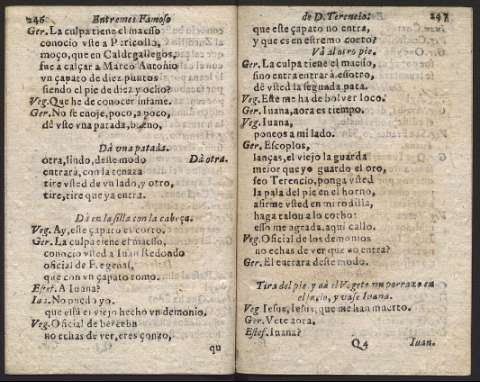 246 Entremes Famoso
Ger. La culpa tiene el maesso
conocio vste a Pericollo,
moço, que en Caldegallegos,
fue a calçar a Marco Antonio
vn çapato de diez puntos
siendo el pie de diez y ocho?
Veg. Que he de conocer infame.
Ger. No se enoje, poco, a poco,
dè vste vna patada, bueno,
Dà vna patada.
otra, lindo, deste modo Dà otra.
entrarà, con la tenaza
tire vsted de vn lado, y otro,
tire, tire que ya entra.
Dà en la silla con la cabeça.
Veg. Ay, este çapato es corto.
Ger. La culpa tiene el maesso,
conocio vsted a Iuan Redondo
oficial de
que con vn çapato romo.
Estef. A Iuana?
Iua. No puedo yo.
que està el viejo hecho vn demonio.
Veg. Oficial de
no echas de ver, eres gonzo,
qu
de D. Terencio. 247
que este çapato no entra,
y que es en estremo corto?
Và al otro pie.
Ger. La culpa tiene el maesso,
sino entra entrarà essotro,
dè vsted la segunda pata.
Veg. Este me ha de bolver loco.
Ger. Iuana, aora es tiempo.
Veg. Iuana,
poneos a mi lado.
Ger. Escoplos,
lanças, el viejo la guarda
mejor que yo guardo el oro,
seo Terencio, ponga vsted
la pala del pie en el horno,
afirme vsted en mi rodilla,
haga talon a lo corbo:
esso me agrada, aqui callo.
Veg. Oficial de los demonios
no echas de ver que no entra?
Ger. El entrara deste modo.
Tira del pie y dà el Vegete vn porrazo en
el y vase Iuana.
Veg Iesus, Iesus, que me han muerto.
Ger. Vete aora,
Estef. Iuana?
Q4 Iuan.